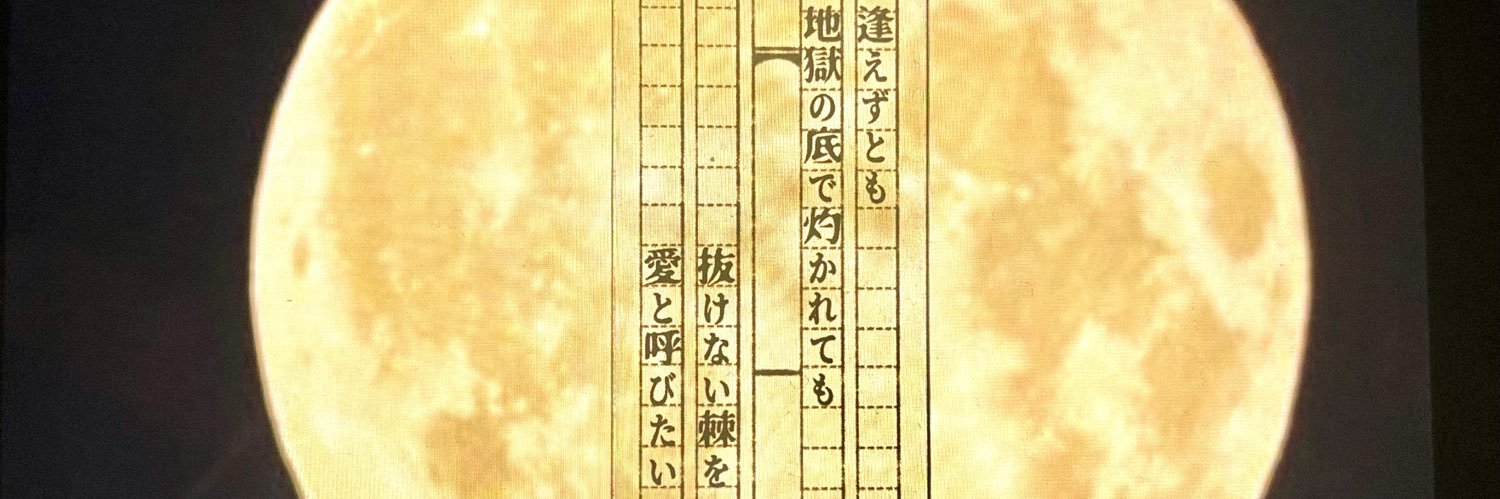 逢えずとも
地獄の底で灼かれても
抜けない棘を
愛と呼びたい